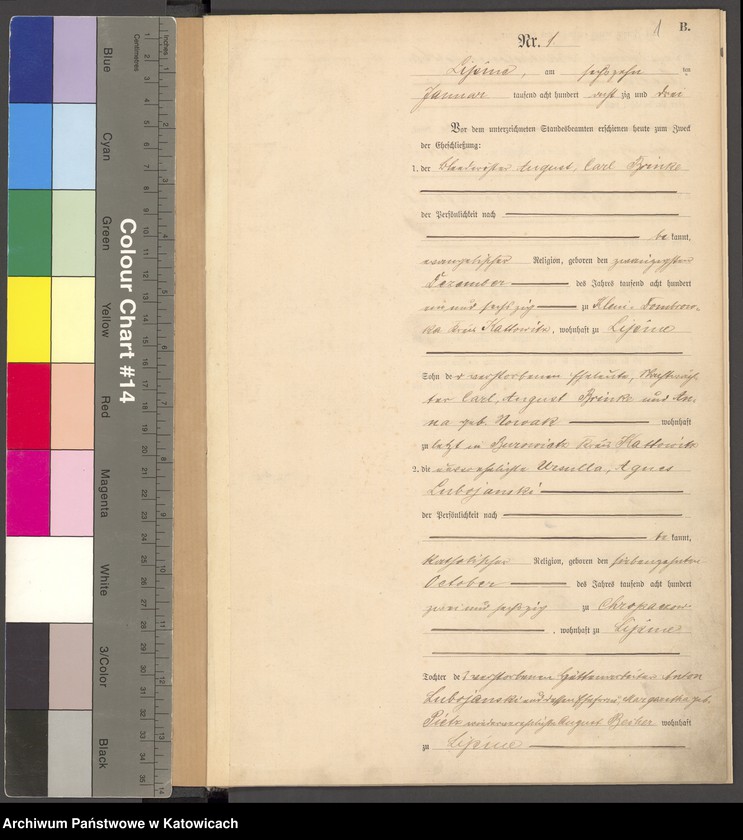 1 B.
Nr. 1.
Lipine, am sechszehn ten
Januar tausend acht hundert acht zig und drei
Vor dem unterzeichneten Standesbeamten erschienen heute zum Zweck
der Eheschließung:
1. der August, Carl Brinke
der Persönlichkeit nach
be kannt,
evangelischer Religion, geboren den zwanzigsten
Dezember des Jahres tausend acht hundert
und sechszig zu Klein-Dombrow-
ka Kreis Kattowitz, wohnhaft zu Lipine
Sohn der verstorbenen Eheleute,
ter Carl, August Brinke und An-
na geb. Nowak wohnhaft
zuletzt in Kreis Kattowitz
2. die unverehelichte Ursulla, Agnes
Lubojanski
der Persönlichkeit nach
be kannt,
katholischer Religion, geboren den siebenzehnten
October des Jahres tausend acht hundert
zwei und sechszig zu Chropaczow
, wohnhaft zu Lipine
Tochter des verstorbenen Hüttenarbeiter Anton
Lubojanski und dessen Ehefrau Margaretha geb.
wiederverehelichte August Becker wohnhaft
zu Lipine
Colour Chart #14
Blue
Cyan
Green
Yellow
Red
Magenta
White
3/Color
Black
Centimetres
Inches
Archiwum Państwowe w Katowicach